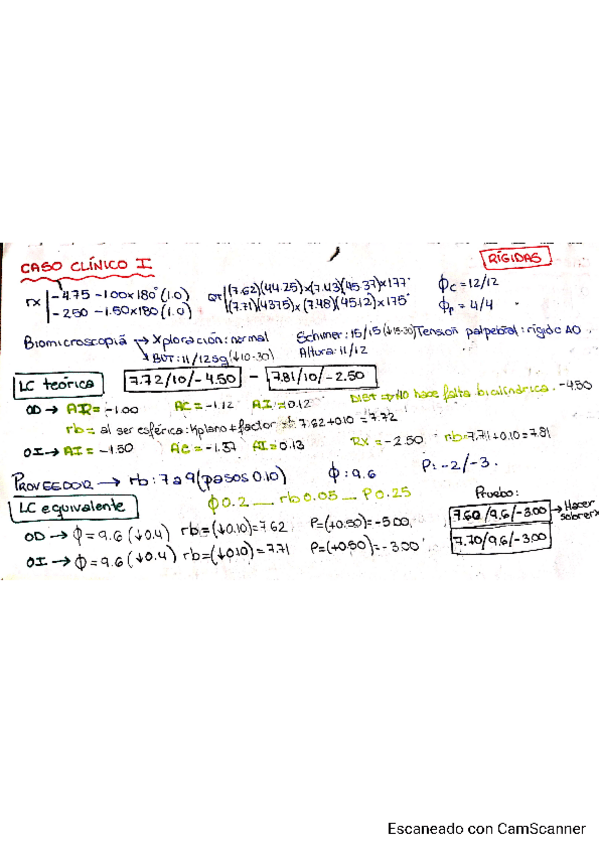 CASO CLÍNICO I
RÍGIDAS
Rx -4.75 -1.00x180° (1.0) QT (7.62)(44.25)x(7.43)(45.37)x177° ϕc = 12/12
-2.50 -1.50x180° (1.0) (7.71)(43.75)x(7.48)(45.12)x175° ϕp = 4/4
Biomicroscopía → Xploración: normal Schirmer: 15/15 (↓15-30) Tensión palpebral: rígido AO.
BUT: 11/12sg (↓10-30) Altura: 11/12
LC teórica 7.72/10/-4.50 - 7.81/10/-2.50
OD → AR = -1.00 AC = -1.12 AI = 0.12 DIST ⇒ No hace falta bicilíndrica. -4.50
rb = al ser esférica: Kplano + factor = 7.62+0.10 = 7.72
OI → AI = -1.50 AC = -1.37 AI = 0.13 RX = -2.50 rb = 7.71+0.10 = 7.81
PROVEEDOR → rb: 7 a 9 (pasos 0.10) ϕ: 9.6 P: -2/-3.
LC equivalente ϕ0.2 __ rb 0.05 __ P 0.25
Prueba:
OD → ϕ = 9.6 (↓0.4) rb = (↓0.10) = 7.62 P = (+0.50) = -5.00. 7.60/9.6/-3.00 → Hacer sobrerx
OI → ϕ = 9.6 (↓0.4) rb = (↓0.10) = 7.71 P = (+0.50) = -3.00 7.70/9.6/-3.00
Escaneado con CamScanner